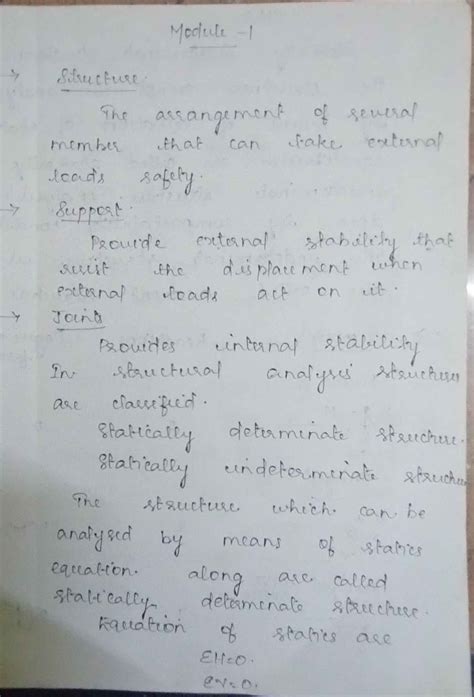 Module -1
→ Structure.
The arrangement of several
member that can take external
loads safety.
→ Support.
Provide external stability that
resist the displacement when
external loads act on it.
→ Joint
Provides internal stability
In structural analysis structures
are classified.
Statically determinate structure.
Statically indeterminate structure
The structure which can be
analysed by means of statics
equation. along are called
statically determinate structure.
Equation of statics are
ΣH=0.
ΣV=0.